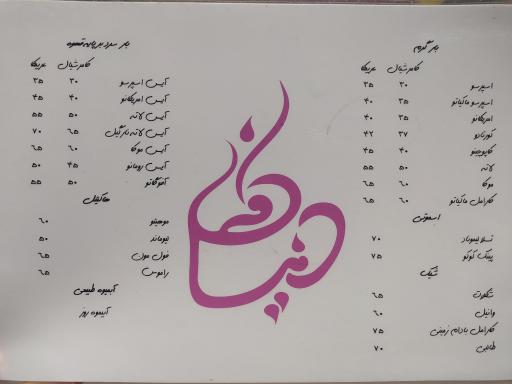 بار گرم
کامرشیال عربیکا
اسپرسو ۳۰ ۳۵
اسپرسو ماکیاتو ۳۵ ۴۰
امریکانو ۳۵ ۴۰
کورتادو ۳۷ ۴۲
کاپوچینو ۴۰ ۴۵
لاته ۵۰ ۵۵
موکا ۶۰ ۶۵
کارامل ماکیاتو ۶۰ ۶۵
اسموتی
۷۰
پینک کوکو ۷۵
شیک
شکلات ۶۵
وانیل ۶۰
کارامل بادام زمینی ۷۵
طالبی ۷۰
بار سرد بر پایه قهوه
کامرشیال عربیکا
آیس اسپرسو ۳۰ ۳۵
آیس امریکانو ۴۰ ۴۵
آیس لاته ۵۰ ۵۵
آیس لاته نارگیل ۶۵ ۷۰
آیس موکا ۶۰ ۶۵
آیس رومانو ۴۵ ۵۰
آفوگاتو ۵۰ ۵۵
ماکتیل
موهیتو ۶۰
لیموناد ۵۰
فول مون ۶۵
راموس ۶۵
آبمیوه طبیعی
آبمیوه روز